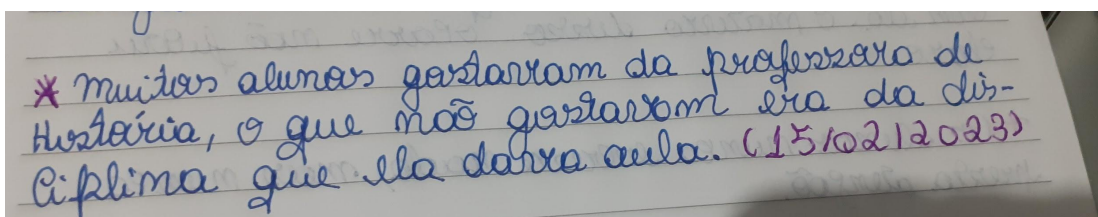 * muitos alunos gostavam da professora de
História, o que não gostavam era da dis-
ciplina que ela dava aula. (15/02/2023)